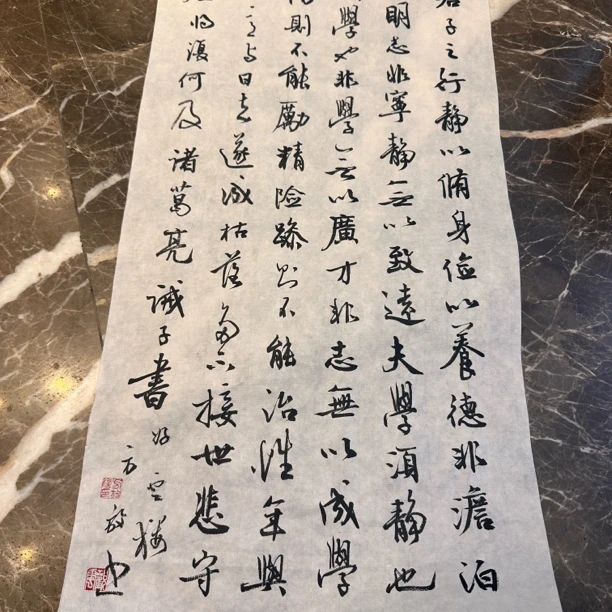 君子之行静以脩身俭以養德非澹泊
明志非寧静无以致遠夫學須静也
學也非學无以廣才非志無以成學
則不能勵精险躁则不能治性年與
意与日去遂成枯落多不接世悲守
将復何及諸葛亮誡子書